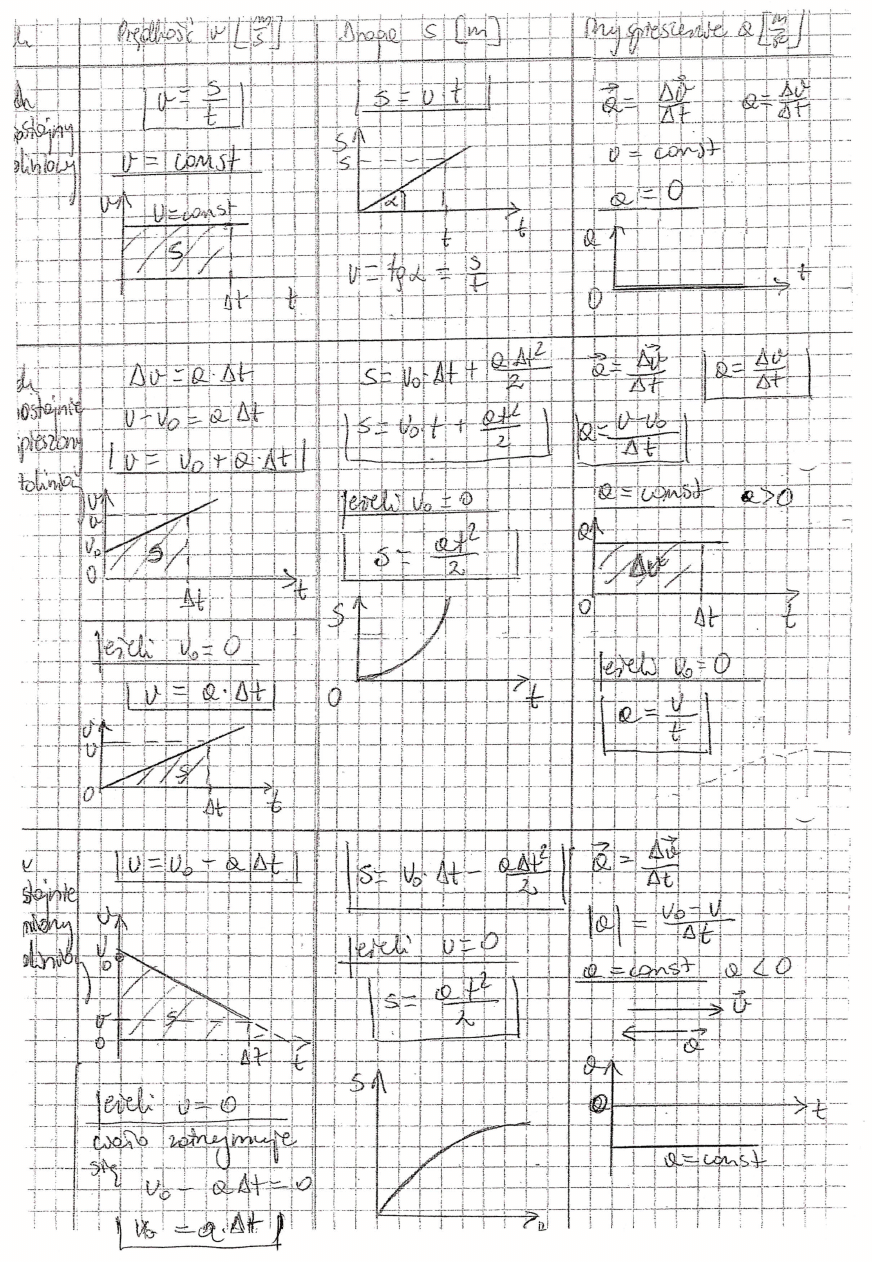 ch
Prędkość v [m/s]
Droga s [m]
Przyspieszenie a [m/s²]
ch
ostajny
oliniowy
v = s/t
v = const
v
v=const
s
Δt
t
s = v·t
s
s
α
t
t
v = tgα = s/t
a⃗ = Δv⃗/Δt a = Δv/Δt
v = const
a = 0
a
0
t
ch
ostajnie
pieszony
toliniowy
Δv = a·Δt
v-v₀ = aΔt
v = v₀ + a·Δt
v
v
v₀
0
s
Δt
t
jeżeli v₀ = 0
v = a·Δt
v
v
0
s
Δt
t
s = v₀·Δt + aΔt²/2
s = v₀·t + at²/2
jeżeli v₀ = 0
s = at²/2
s
0
t
a⃗ = Δv⃗/Δt a = Δv/Δt
a = v-v₀/Δt
a = const a>0
a
Δv
0
Δt
t
jeżeli v₀ = 0
a = v/t
stajnie
oliniowy
v = v₀ - aΔt
v
v₀
v
0
s
Δt
t
jeżeli v = 0
ciało zatrzymuje
się
v₀ - aΔt = 0
v₀ = a·Δt
s = v₀·Δt - aΔt²/2
jeżeli v = 0
s = at²/2
s
a⃗ = Δv⃗/Δt
|a| = v₀-v/Δt
a = const a < 0
v⃗
a⃗
a
0
t
a = const